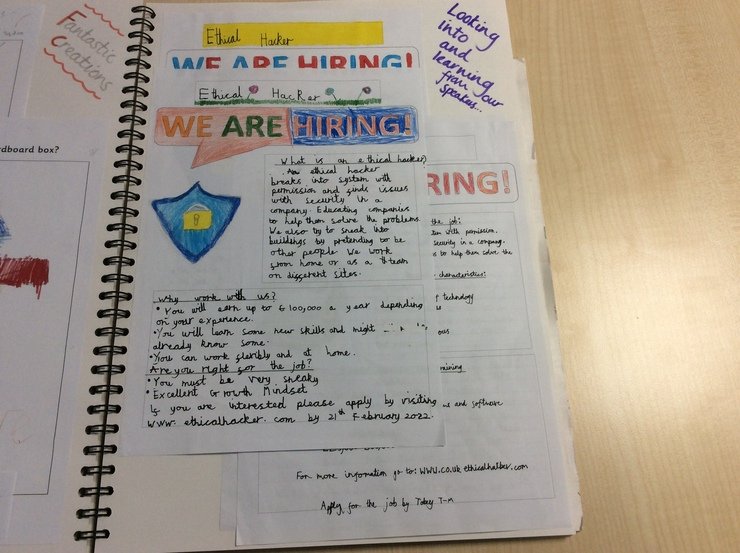 Fantastic
Creations
rdboard box?
Ethical Hacker
WE ARE HIRING!
Ethical Hacker
WE ARE HIRING!
What is an ethical hacker?
An ethical hacker
breaks into system with
permission and finds issues
with security in a
company. Educating companies
to help them solve the problems.
We also try to sneak into
buildings by pretending to be
other people. We work
from home or as a team
on different sites.
Why work with us?
• You will earn up to £100,000 a year depending
on your experience.
• You will learn some new skills and might
already know some.
• You can work flexibly and at home.
Are you right for the job?
• You must be very sneaky
• Excellent Growth Mindset
If you are interested please apply by visiting
www. ethicalhacker.com by 21st February 2022.
Looking
into
and
learning
from our
speakers...
RING!
the job:
tem with permission.
security in a company.
is to help them solve the
characteristics:
technology
ous
us and software
For more information go to: www.co.uk ethicalhalker.com
Apply for the job by Tobey T-M